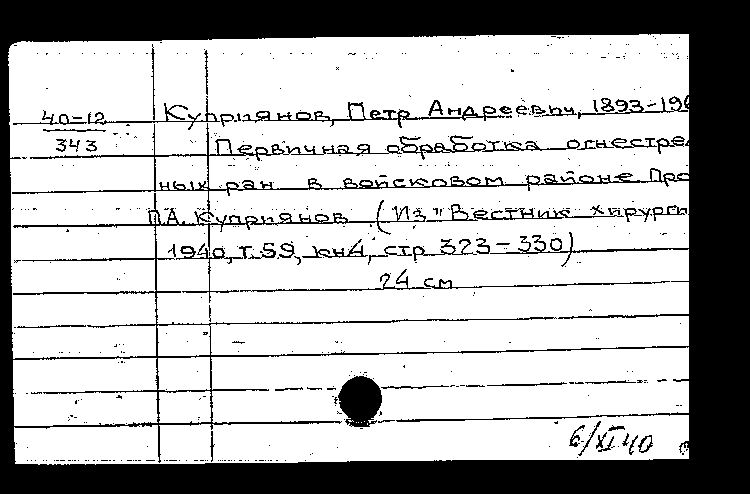 40-12
343
Куприянов, Петр Андреевич, 1893-196
Первичная обработка огнестре
ных ран в войсковом районе Про
П.А. Куприянов (Из "Вестник хирурги
1940, т. 59, кн4, стр 323-330)
24 см
6/XI 40